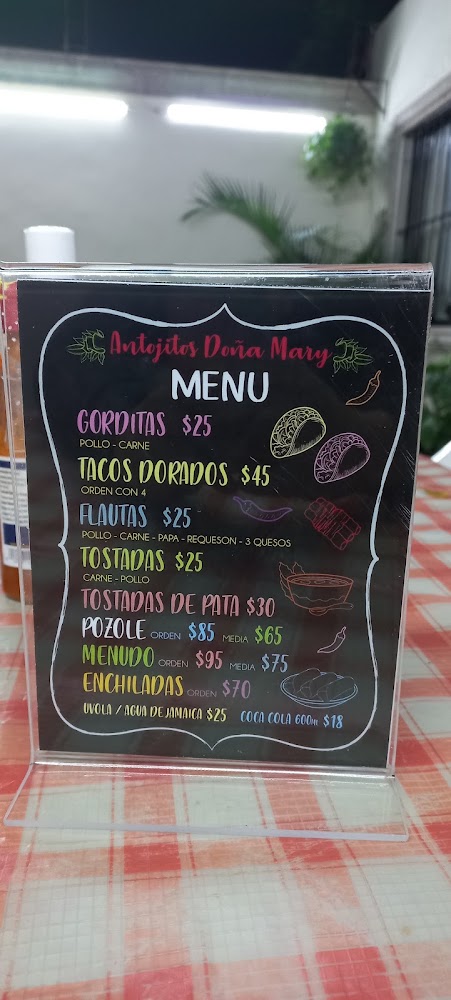 Antojitos Doña Mary
MENU
GORDITAS $25
POLLO - CARNE
TACOS DORADOS $45
ORDEN CON 4
FLAUTAS $25
POLLO - CARNE - PAPA - REQUESON - 3 QUESOS
TOSTADAS $25
CARNE - POLLO
TOSTADAS DE PATA $30
POZOLE ORDEN $85 MEDIA $65
MENUDO ORDEN $95 MEDIA $75
ENCHILADAS ORDEN $70
UVOLA / AGUA DE JAMAICA $25 COCA COLA 600ML $18